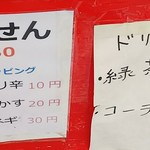 せん
0
ピング
り辛 10円
かす 20円
ネギ 30円
ドリ
・緑茶
・コーラ